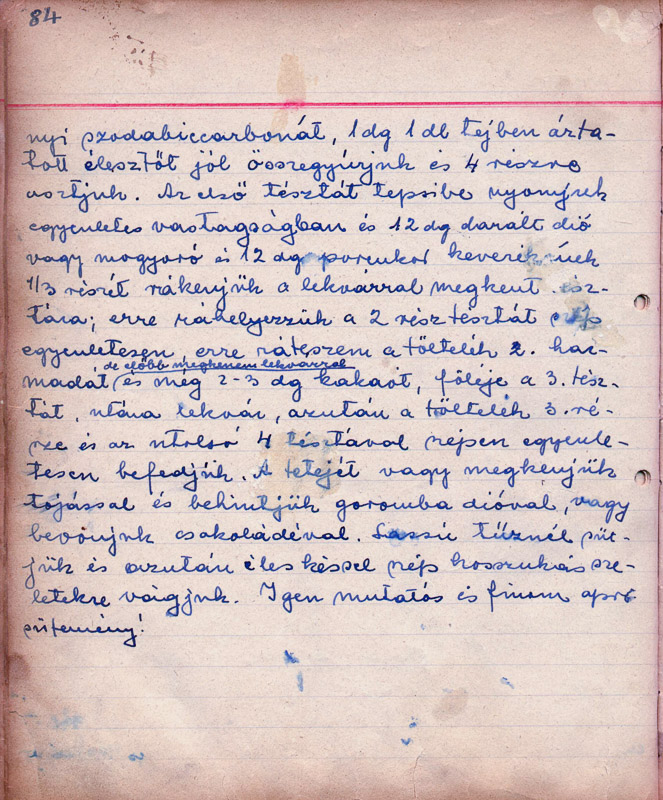 84
nyi szodabiccarbonát, 1 dg 1 dl tejben ázta-
tott élesztőt jól összegyúrjuk és 4 részre
osztjuk. Az első tésztát tepsibe nyomjuk
egyenletes vastagságban és 12 dg darált dió
vagy mogyoró és 12 dg porcukor keverékének
1/3 részét rákenjük a lekvárral megkent tész-
tára; erre ráhelyezzük a 2 rész tésztát szép
egyenletesen, erre ráteszem a töltelék 2. har-
de előbb megkenem lekvárral
madát és még 2-3 dg kakaót, föléje a 3. tész-
tát, utána lekvár, azután a töltelék 3. ré-
sze és az utolsó 4 tésztával szépen egyenle-
tesen befedjük. A tetejét vagy megkenjük
tojással és behintjük goromba dióval, vagy
bevonjuk csokoládéval. Lassú tűznél süt-
jük és azután éles késsel szép hosszukás sze-
letekre vágjuk. Igen mutatós és finom apró
sütemény!